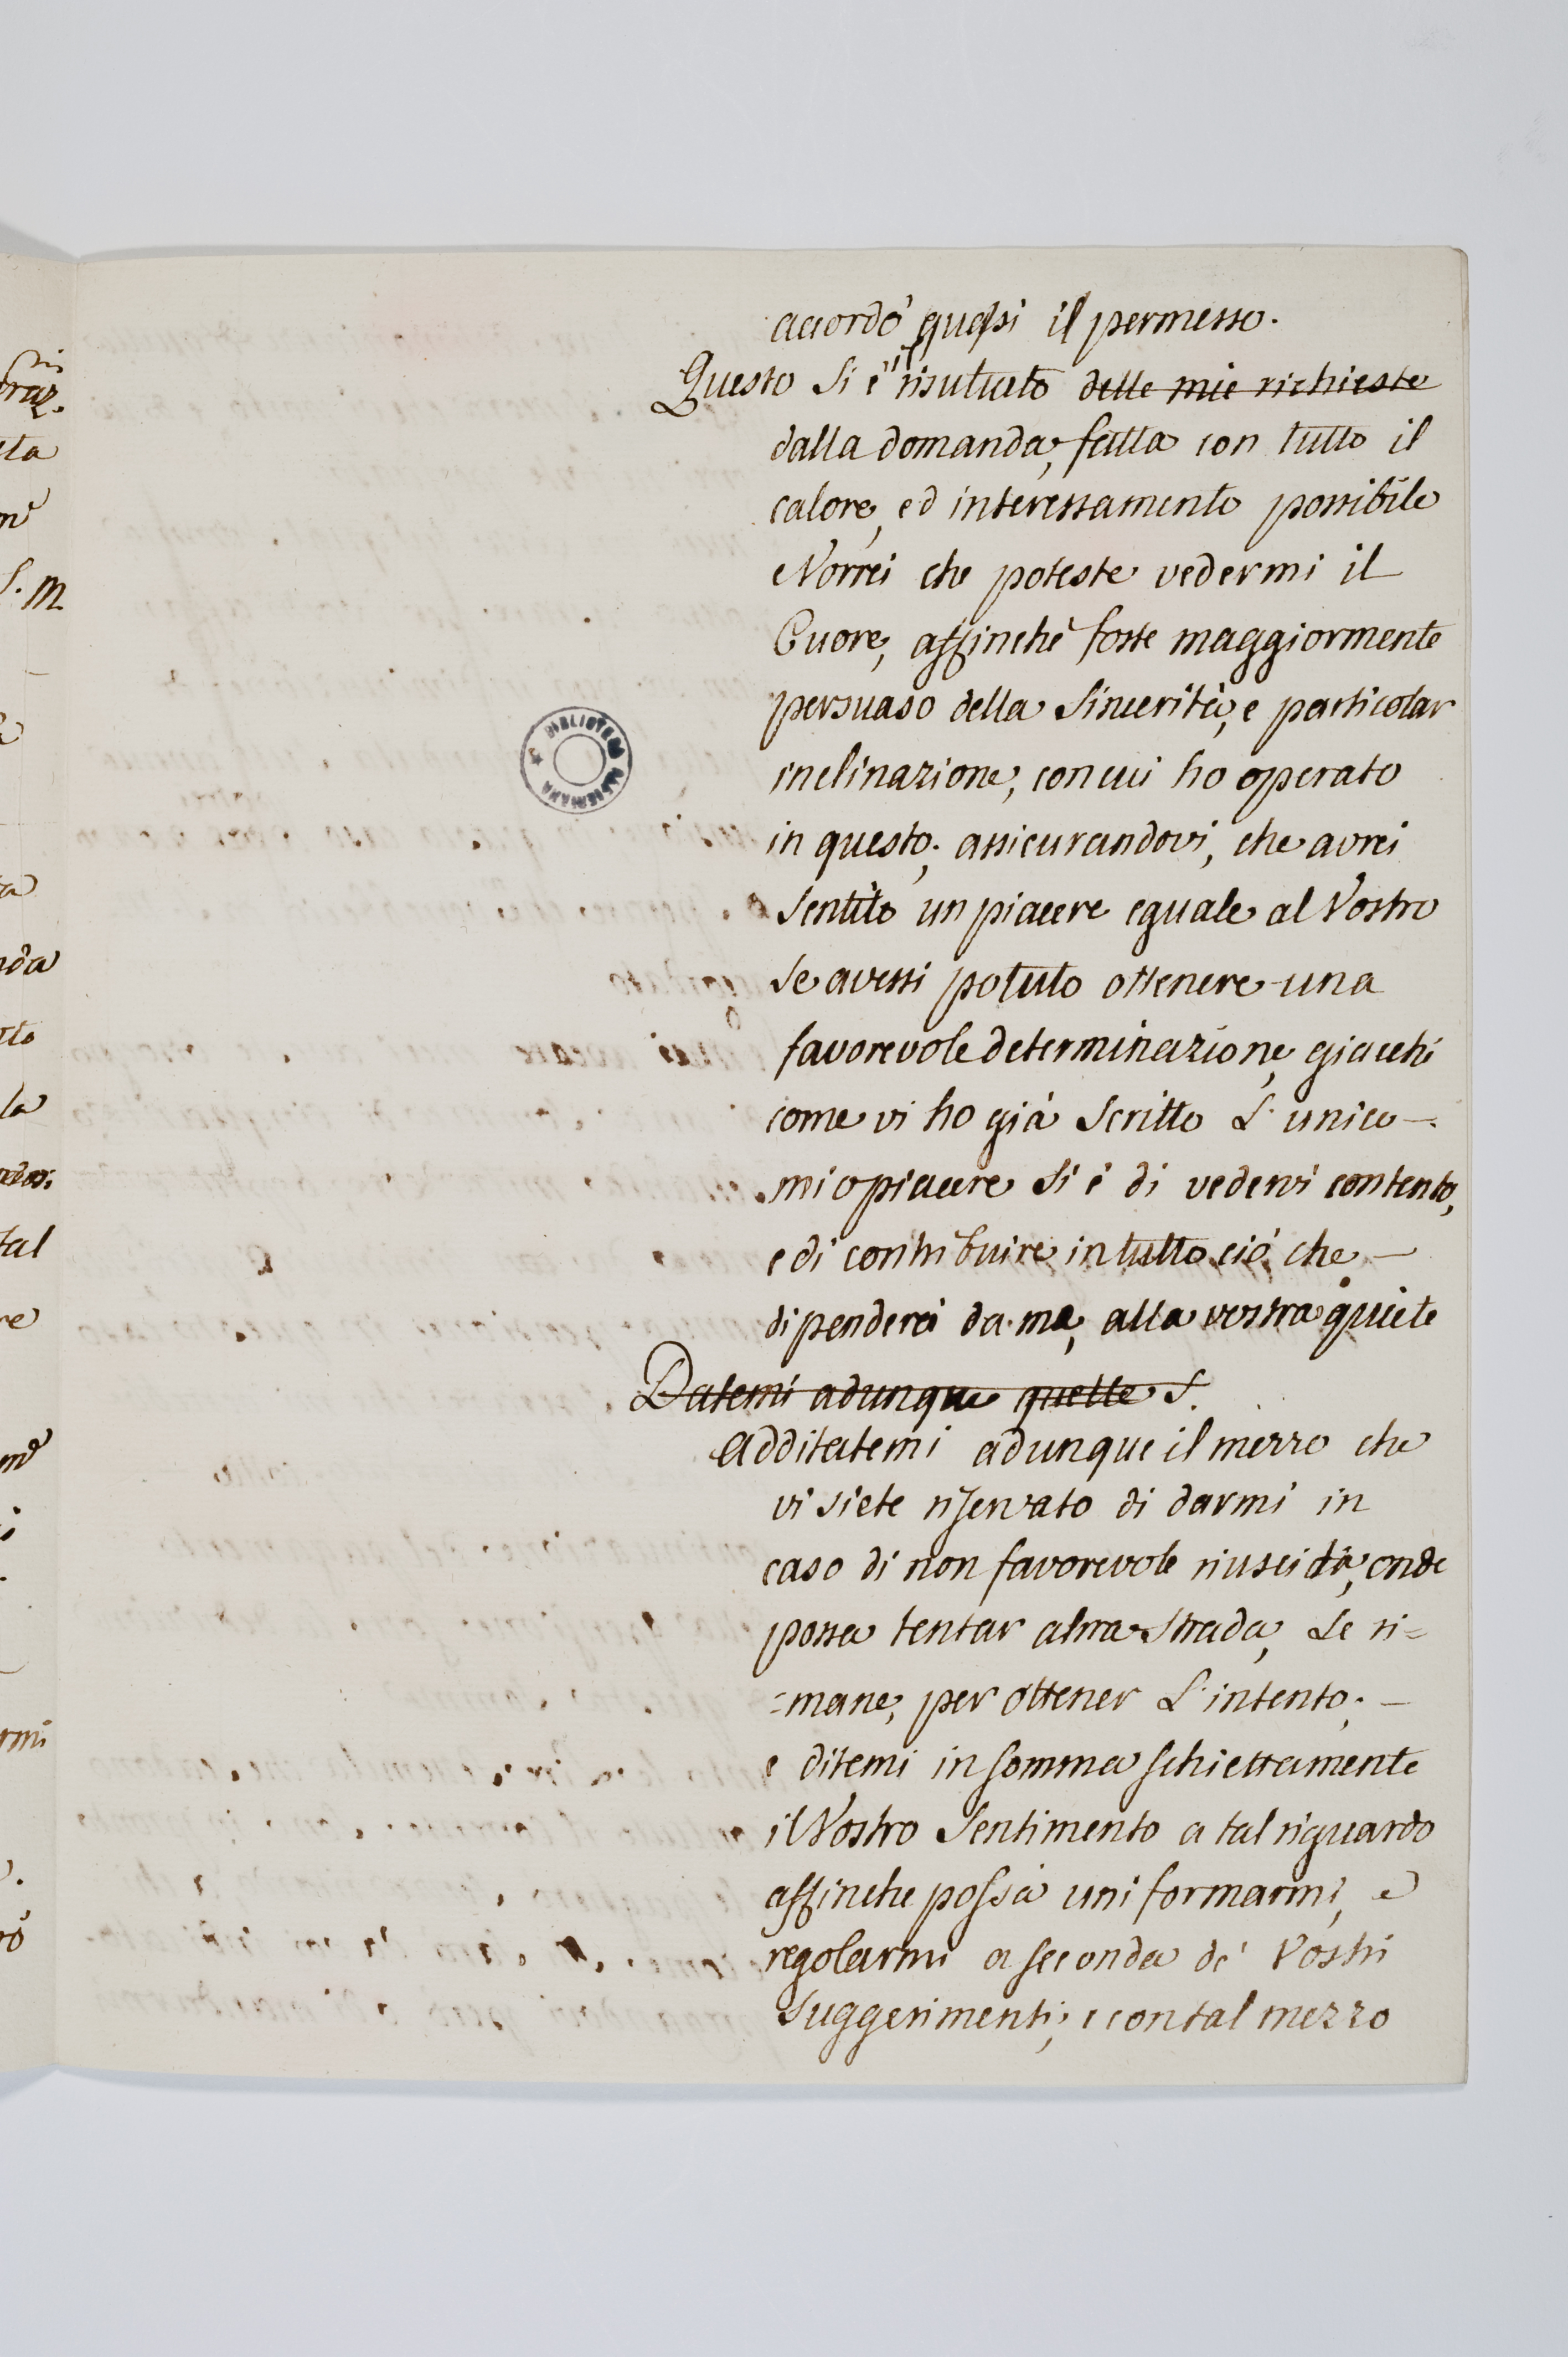 accordó quasi il permesso.
Questo si é il risultato delle mie richieste
dalla domanda, fatta con tutto il
calore, ed interessamento possibile
Vorrei che poteste vedermi il
Cuore, affinchè foste maggiormente
persuaso della sincerità, e particolar
inclinazione, con cui ho operato
in questo; assicurandovi, che avrei
sentito un piacere eguale al Vostro
se avessi potuto ottenere una
favorevole determinazione, giacchè
come vi ho già scritto L'unico —
mio piacere si é di vedervi contento,
e di contribuire in tutto ció che —
dipenderá da me, alla vostra quiete
Datemi adunque quelle S.
Additatemi adunque il mezzo che
vi siete riservato di darmi in
caso di non favorevole riuscita, onde
possa tentar altra strada, se ri=
=mane, per ottener L'intento; —
e ditemi in somma schiettamente
il Vostro sentimento a tal riguardo
affinche possa uniformarmi, e
regolarmi a seconda de' Vostri
suggerimenti; e con tal mezzo
BIBLIOTECA
raz.
ta
S. M
a
nda
tto
la
tal
re
rmi
ró